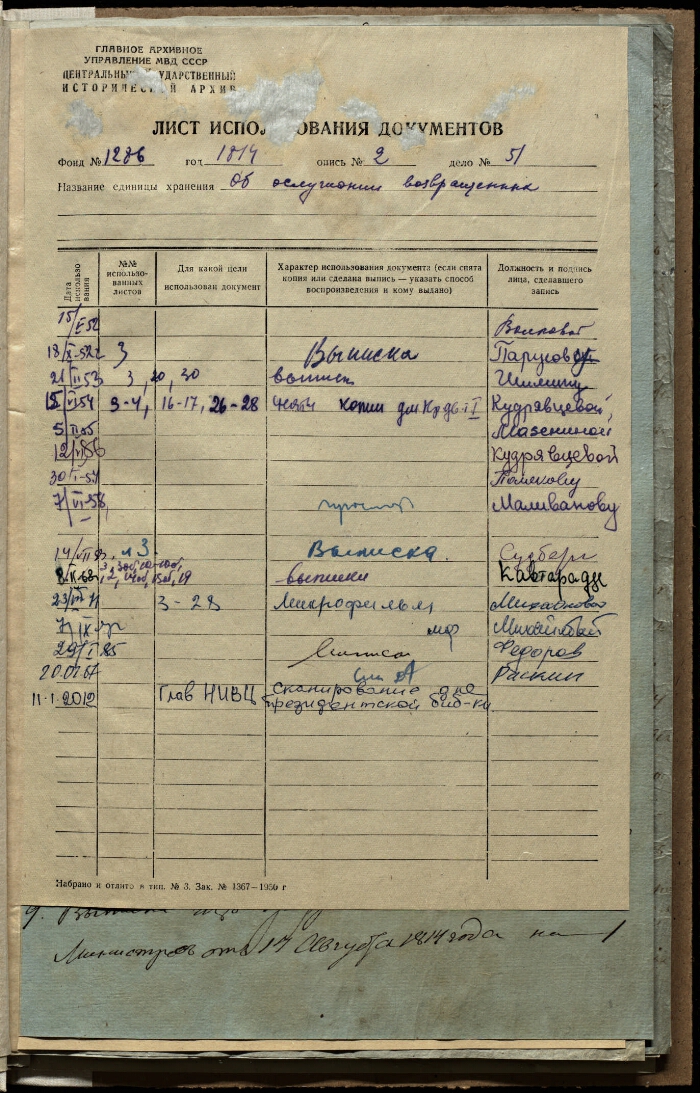 ГЛАВНОЕ АРХИВНОЕ
УПРАВЛЕНИЕ МВД СССР
ЦЕНТРАЛЬНЫЙ ГОСУДАРСТВЕННЫЙ
ИСТОРИЧЕСКИЙ АРХИВ
ЛИСТ ИСПОЛЬЗОВАНИЯ ДОКУМЕНТОВ
Фонд № 1286 год 1814 опись № 2 дело № 51
Название единицы хранения Об ослушании возвращенных
Дата использования
№№ использованных листов
Для какой цели использован документ
Характер использования документа (если снята копия или сделана выпись — указать способ воспроизведения и кому выдано)
Должность и подпись лица, сделавшего запись
15/ 52
18/X-52 3 Выписка
21/II 53 3, 20, 30
15/VI 54 3-4, 16-17, 26-28 копии Кудрявцевой,
5/II 55 Мазениной
12/ 56 Кудрявцевой
30/I-57 Полякову
7/VI-58, Маливанову
14/VII л 3 Выписка.
8.X-68 выписки Кавтарадзе
23/ 71 3-28 Микрофильм
7/IX мф
29/I 85 Федоров
20.02 87 Раскин
11.1.2012 Глав НИВЦ сканирование для
президентской биб-ки
Набрано и отлито в тип. № 3. Зак. № 1367—1950 г
9. Выписка
Министров от 17 Августа 1814 года на 1